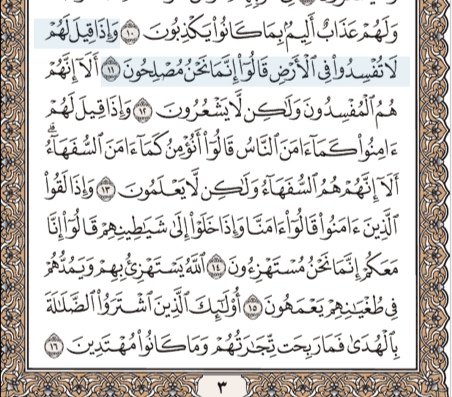 وَلَهُمْ عَذَابٌ أَلِيمٌۢ بِمَا كَانُوا۟ يَكْذِبُونَ ١٠ وَإِذَا قِيلَ لَهُمْ
لَا تُفْسِدُوا۟ فِى ٱلْأَرْضِ قَالُوٓا۟ إِنَّمَا نَحْنُ مُصْلِحُونَ ١١ أَلَآ إِنَّهُمْ
هُمُ ٱلْمُفْسِدُونَ وَلَـٰكِن لَّا يَشْعُرُونَ ١٢ وَإِذَا قِيلَ لَهُمْ
ءَامِنُوا۟ كَمَآ ءَامَنَ ٱلنَّاسُ قَالُوٓا۟ أَنُؤْمِنُ كَمَآ ءَامَنَ ٱلسُّفَهَآءُ ۗ
أَلَآ إِنَّهُمْ هُمُ ٱلسُّفَهَآءُ وَلَـٰكِن لَّا يَعْلَمُونَ ١٣ وَإِذَا لَقُوا۟
ٱلَّذِينَ ءَامَنُوا۟ قَالُوٓا۟ ءَامَنَّا وَإِذَا خَلَوْا۟ إِلَىٰ شَيَـٰطِينِهِمْ قَالُوٓا۟ إِنَّا
مَعَكُمْ إِنَّمَا نَحْنُ مُسْتَهْزِءُونَ ١٤ ٱللَّهُ يَسْتَهْزِئُ بِهِمْ وَيَمُدُّهُمْ
فِى طُغْيَـٰنِهِمْ يَعْمَهُونَ ١٥ أُو۟لَـٰٓئِكَ ٱلَّذِينَ ٱشْتَرَوُا۟ ٱلضَّلَـٰلَةَ
بِٱلْهُدَىٰ فَمَا رَبِحَت تِّجَـٰرَتُهُمْ وَمَا كَانُوا۟ مُهْتَدِينَ ١٦
٣